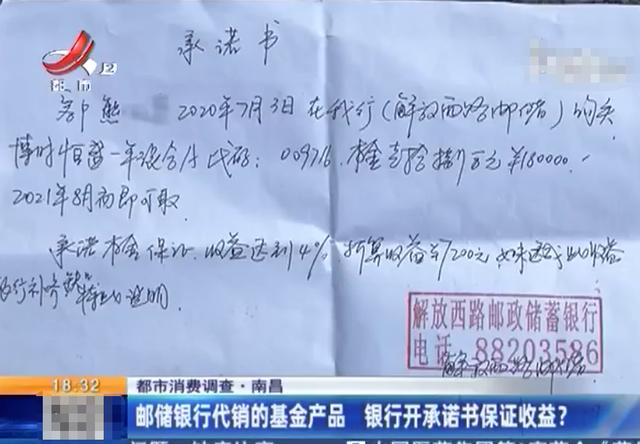 承诺书
2020年7月3日在我行(解放西路邮储)购买
博时恒盈一年混合A 代码:009716.本金壹拾捌万元¥180000.
2021年8月初即可取.
承诺本金保证.收益达到4%.折算收益¥7200元,如未达到此收益
银行补齐 特此说明.
解放西路邮政储蓄银行
电话 88203586
解放西路邮储
2
18:32
都市消费调查·南昌
邮储银行代销的基金产品 银行开承诺书保证收益?